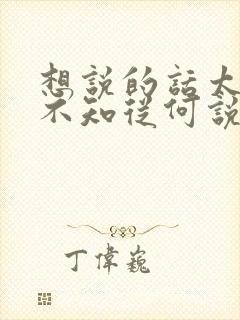 想說的話太
不知從何說
丁偉巍